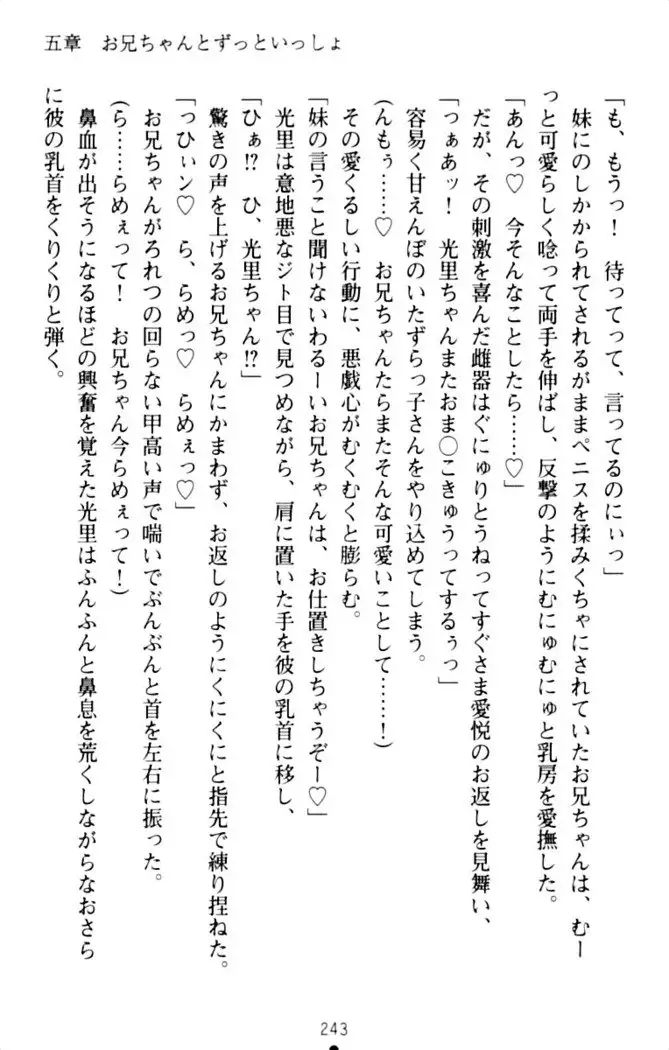 五章　お兄ちゃんとずっといっしょ
「も、もうっ！　待ってって、言ってるのにぃっ」
　妹にのしかかられてされるがままペニスを揉みくちゃにされていたお兄ちゃんは、むー
っと可愛らしく唸って両手を伸ばし、反撃のようにむにゅむにゅと乳房を愛撫した。
「あんっ♡　今そんなことしたら……♡」
　だが、その刺激を喜んだ雌器はぐにゅりとうねってすぐさま愛悦のお返しを見舞い、
「っぁあッ！　光里ちゃんまたおま◯こきゅうってするぅっ」
　容易く甘えんぼのいたずらっ子さんをやり込めてしまう。
（んもぅ……♡　お兄ちゃんたらまたそんな可愛いことして……！）
　その愛くるしい行動に、悪戯心がむくむくと膨らむ。
「妹の言うこと聞けないわるーいお兄ちゃんは、お仕置きしちゃうぞー♡」
　光里は意地悪なジト目で見つめながら、肩に置いた手を彼の乳首に移し、
「ひぁ⁉　ひ、光里ちゃん⁉」
　驚きの声を上げるお兄ちゃんにかまわず、お返しのようにくにくにと指先で練り捏ねた。
「っひぃン♡　ら、らめっ♡　らめぇっ♡」
　お兄ちゃんがろれつの回らない甲高い声で喘いでぶんぶんと首を左右に振った。
（ら……らめぇって！　お兄ちゃん今らめぇって！）
　鼻血が出そうになるほどの興奮を覚えた光里はふんふんと鼻息を荒くしながらなおさら
に彼の乳首をくりくりと弾く。
243